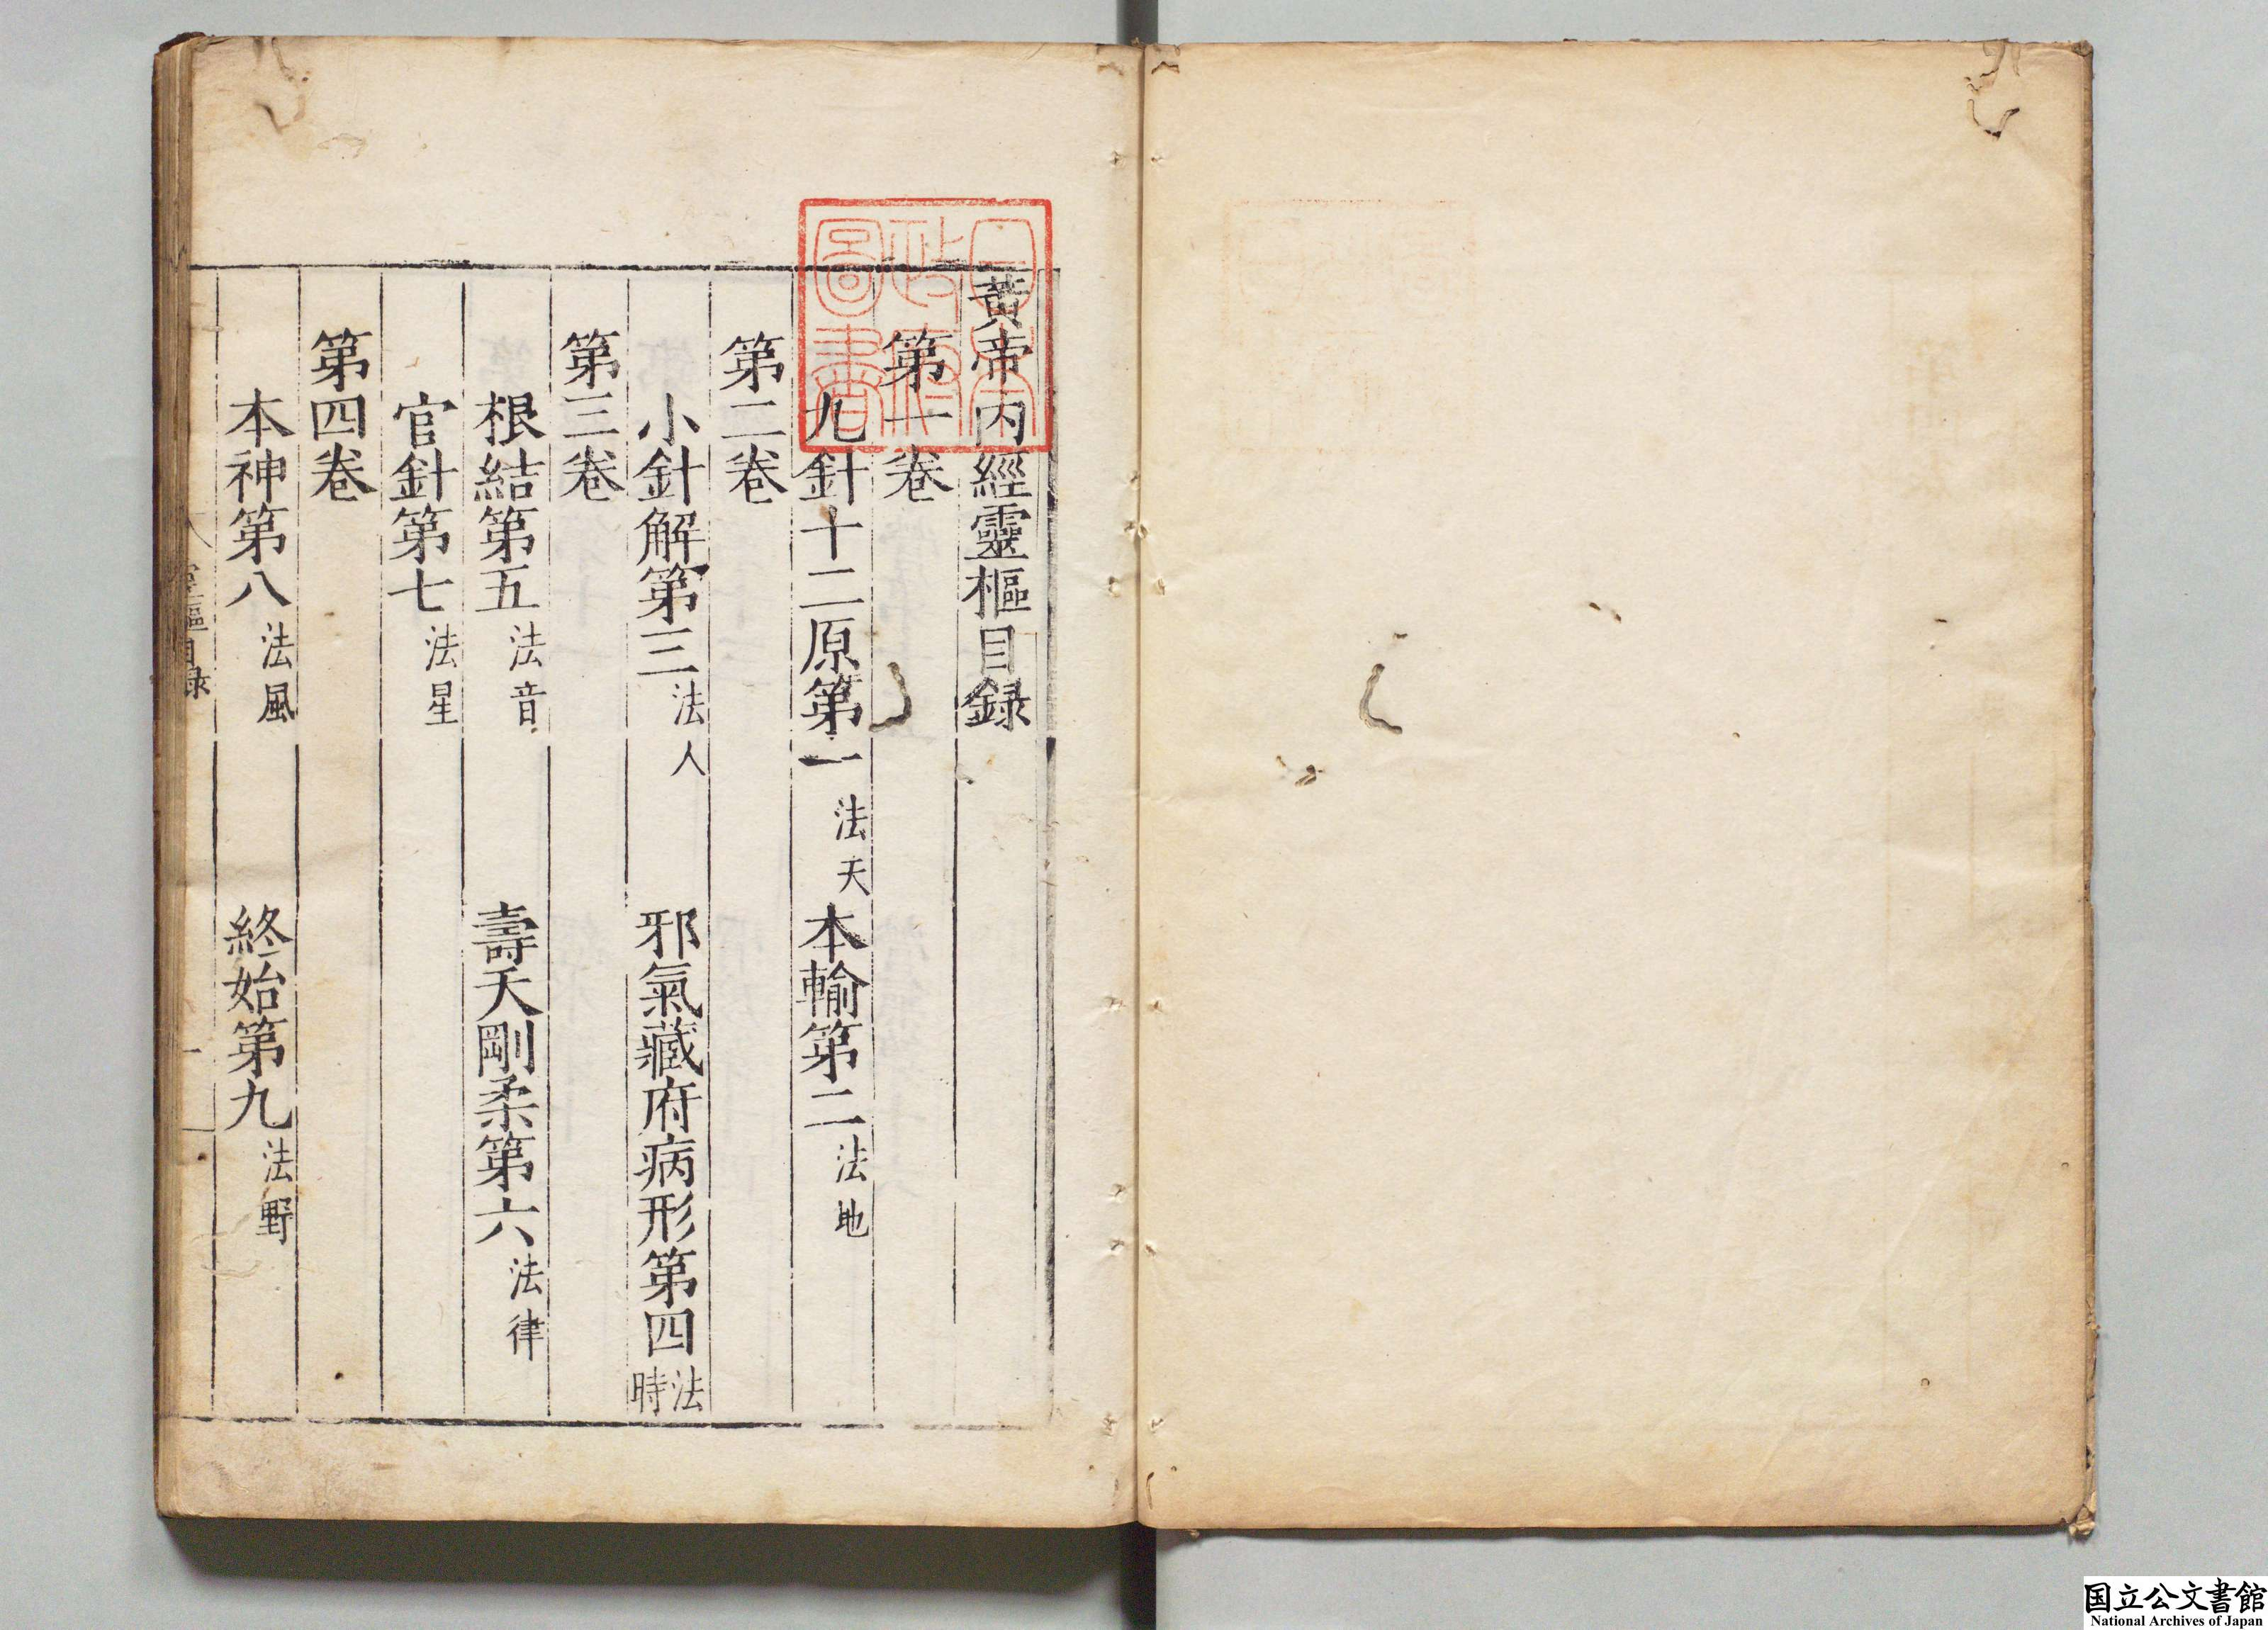 黃帝內經靈樞目錄
第一卷
九針十二原第一 法天 本輸第二 法地
第二卷
小針解第三 法人 邪氣藏府病形第四 法時
第三卷
根結第五 法音 壽夭剛柔第六 法律
官針第七 法星
第四卷
本神第八 法風 終始第九 法野
靈樞目錄 一
日本政府圖書
国立公文書館
National Archives of Japan